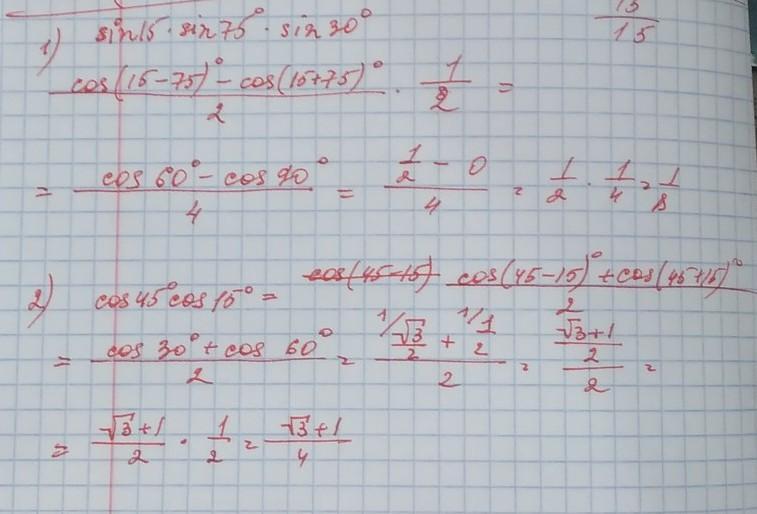 15/15
1) sin15·sin75°·sin30°
(cos(15-75)° - cos(15+75)°)/2 · 1/2 =
= (cos60° - cos90°)/4 = (1/2 - 0)/4 = 1/2 · 1/4 = 1/8
2) cos45°cos15° = cos(45-15) (cos(45-15)° + cos(45+15)°)/2
= (cos30° + cos60°)/2 = (1/√3/2 + 1/1/2)/2 = ((√3+1)/2)/2 =
= (√3+1)/2 · 1/2 = (√3+1)/4